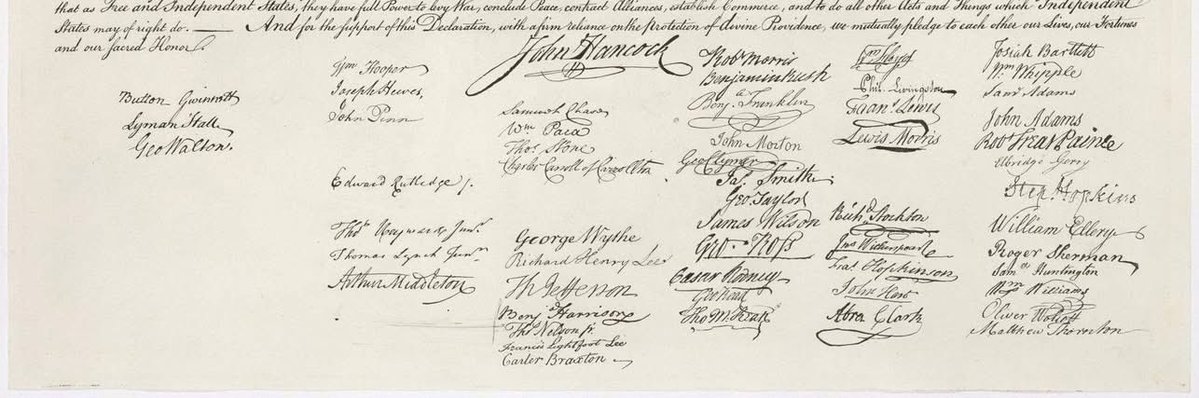 that as Free and Independent States, they have full Power to levy War, conclude Peace, contract Alliances, establish Commerce, and to do all other Acts and Things which Independent
States may of right do. — And for the support of this Declaration, with a firm reliance on the protection of divine Providence, we mutually pledge to each other our Lives, our Fortunes
and our sacred Honor.
Button Gwinnett
Lyman Hall
Geo Walton.
Wm Hooper
Joseph Hewes,
John Penn
Edward Rutledge /.
Thos Heyward Junr.
Thomas Lynch Junr.
Arthur Middleton
John Hancock
Samuel Chase
Wm Paca
Thos Stone
Charles Carroll of Carrollton
George Wythe
Richard Henry Lee
Th Jefferson
Benj Harrison
Thos Nelson jr.
Francis Lightfoot Lee
Carter Braxton
Robt Morris
Benjamin Rush
Benj. Franklin
John Morton
Geo Clymer
Jas. Smith.
Geo. Taylor
James Wilson
Geo. Ross
Caesar Rodney
Geo Read
Tho M:Kean
Wm Floyd
Phil. Livingston
Frans. Lewis
Lewis Morris
Richd. Stockton
Jno Witherspoon
Fras. Hopkinson
John Hart
Abra Clark
Josiah Bartlett
Wm Whipple
Saml Adams
John Adams
Robt Treat Paine
Elbridge Gerry
Step. Hopkins
William Ellery
Roger Sherman
Saml Huntington
Wm Williams
Oliver Wolcott
Matthew Thornton